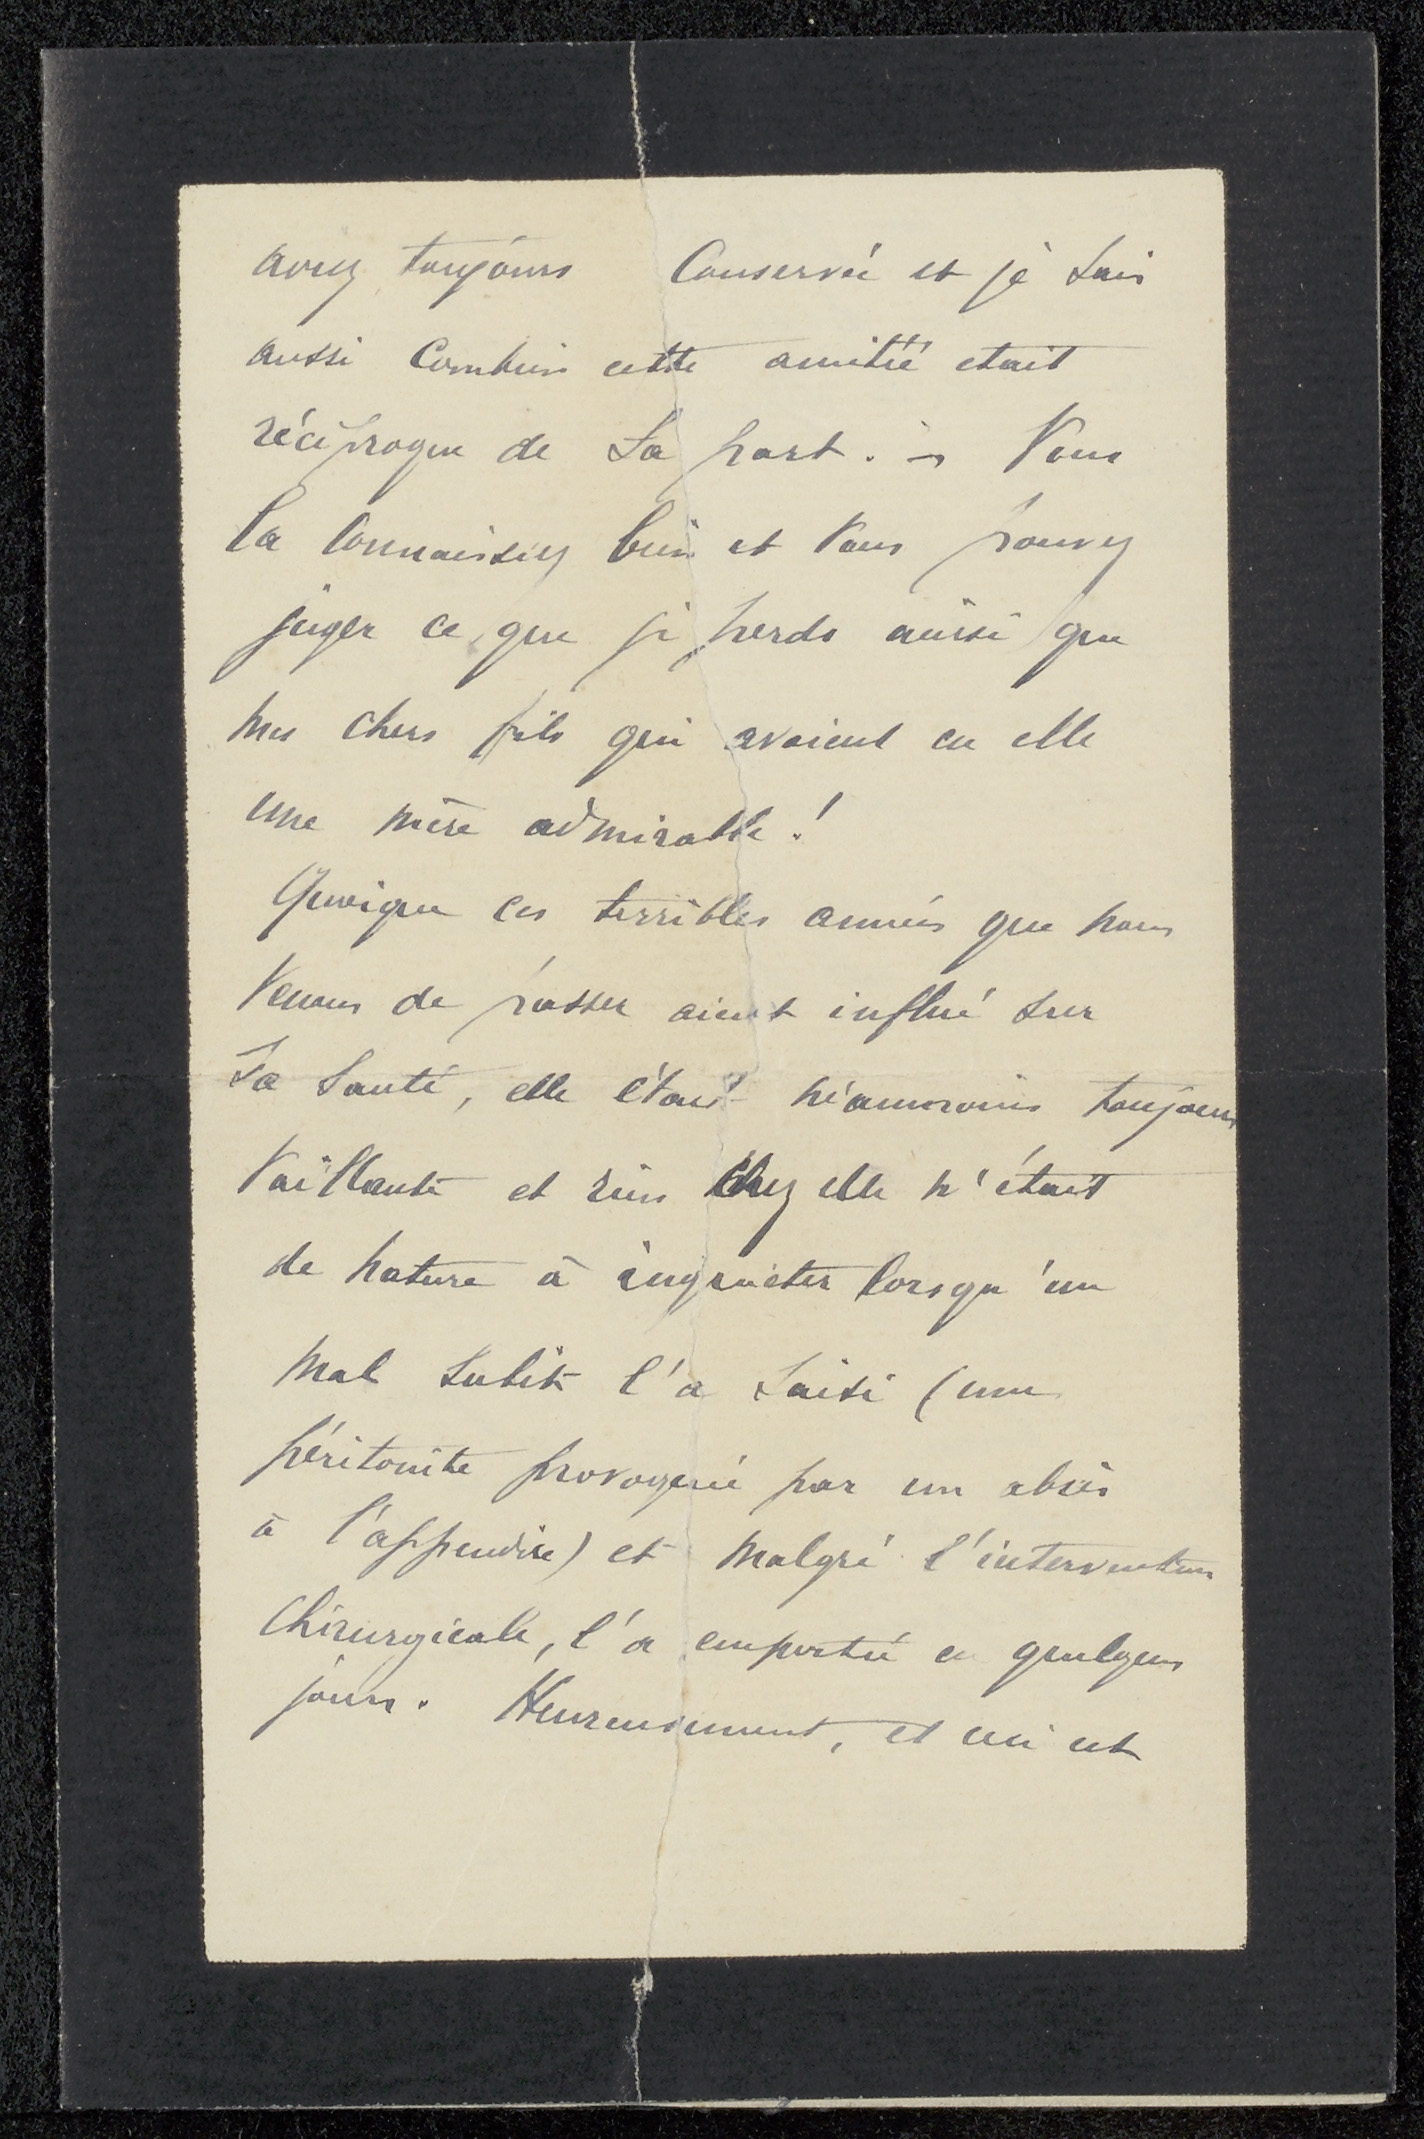 avez toujours Conservée et je sais
aussi Combien cette amitié etait
réciproque de Sa part. - Vous
la Connaissiez bien et Vous pouvez
juger ce que je perds ainsi que
mes chers fils qui avaient en elle
une mère admirable !
Quoique ces terribles années que nous
Venons de passer aient influé sur
Sa Santé, elle était néanmoins toujours
Vaillante et rien chez elle n'était
de nature à inquieter lorsqu'un
mal Subit l'a Saisi (une
péritonite provoquée par un abcès
à l'appendice) et malgré l'intervention
Chirurgicale, l'a emportée en quelques
jours. Heureusement, et ceci est